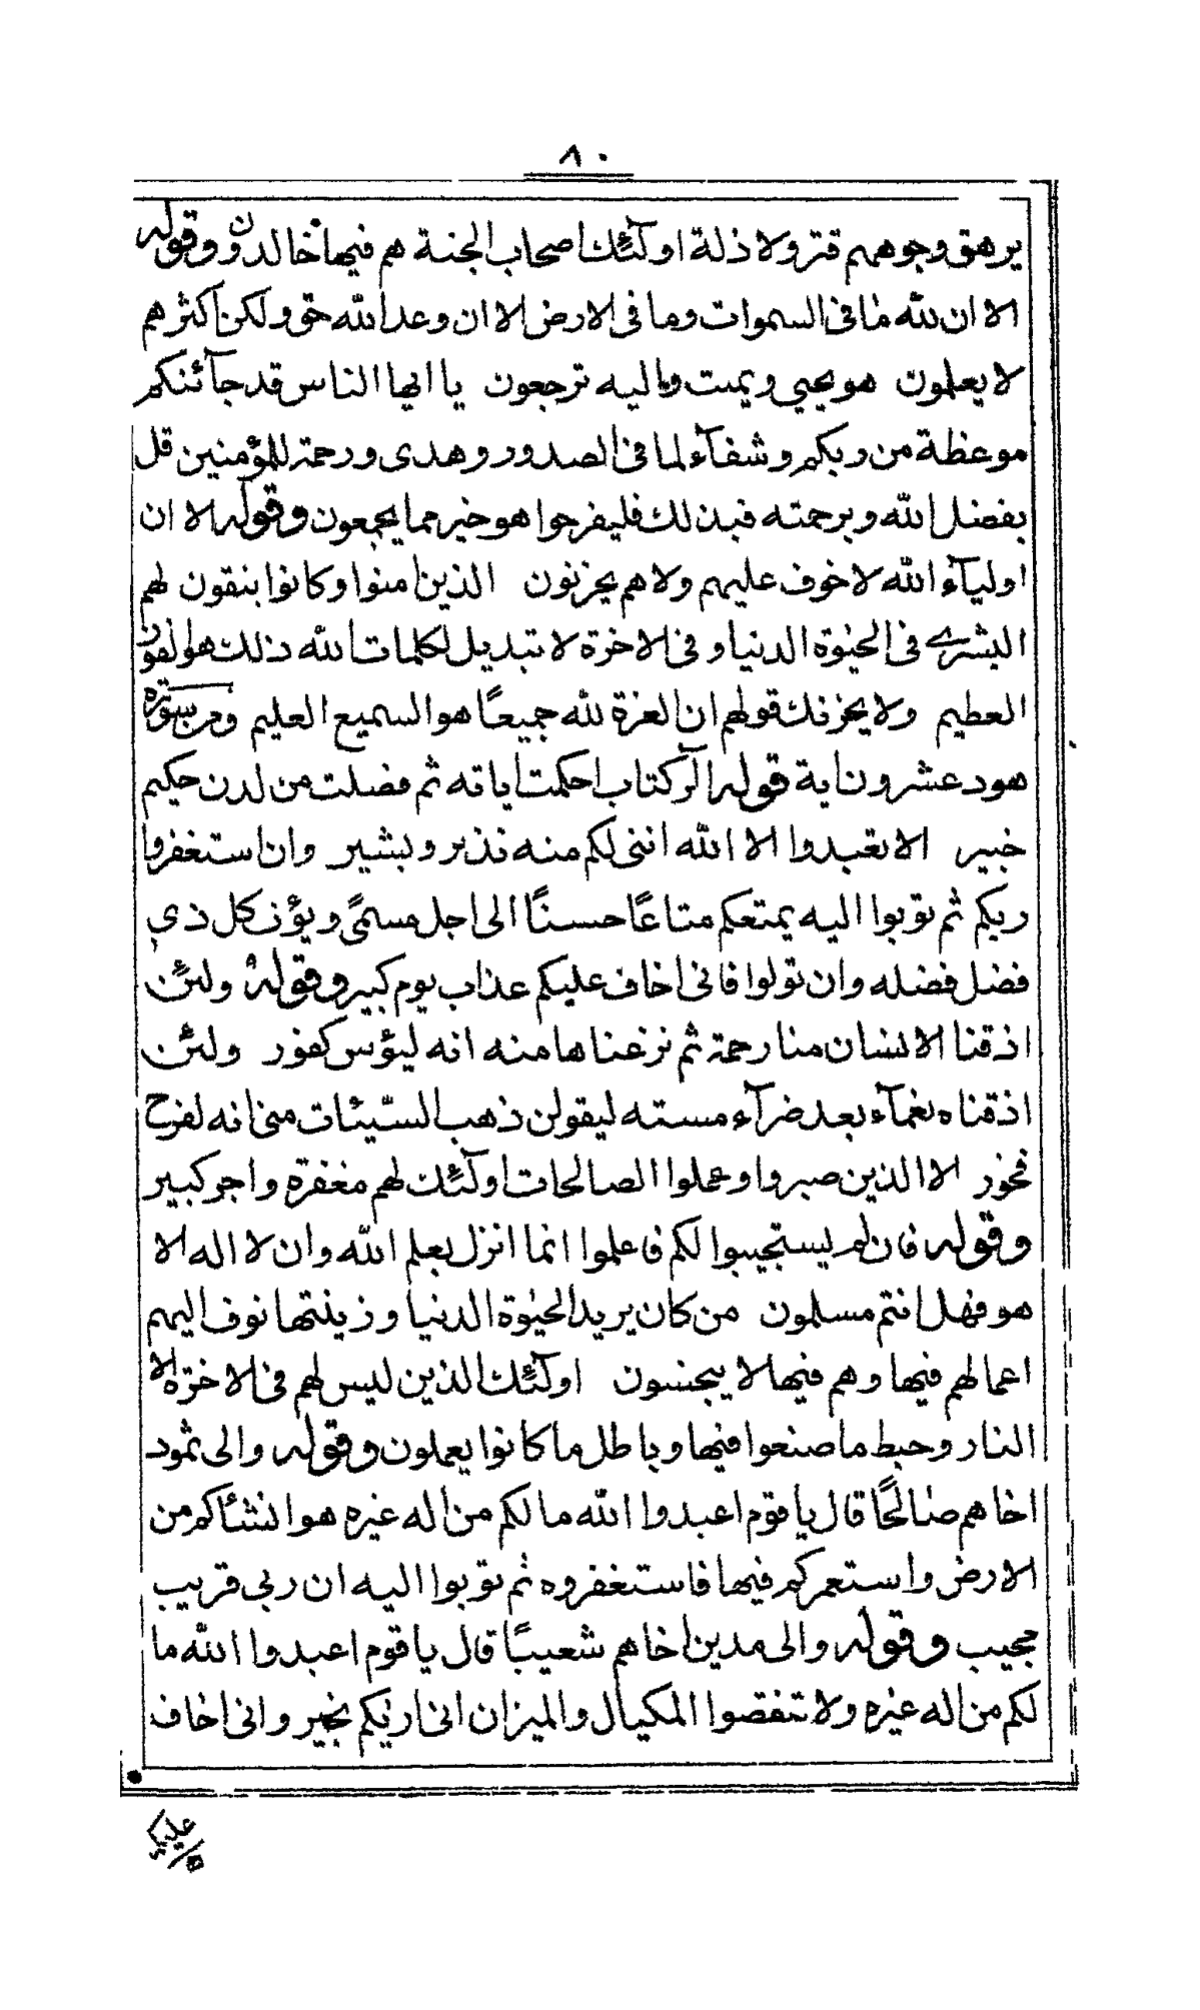 ٨٠
يرهق وجوههم قتر ولا ذلة اولٓئك اصحاب الجنة هم فيها خالدون وقوله
الا ان لله ما فى السموات وما فى الارض الا ان وعد الله حق ولكن اكثرهم
لا يعلمون هو يحيي ويميت واليه ترجعون يا ايها الناس قد جآئتكم
موعظة من ربكم وشفآء لما فى الصدور وهدى ورحمة للمؤمنين قل
بفضل الله وبرحمته فبذلك فليفرحوا هو خير مما يجمعون وقوله الا ان
اوليآء الله لا خوف عليهم ولا هم يحزنون الذين امنوا وكانوا يتقون لهم
البشرى فى الحيوة الدنيا وفى الاخرة لا تبديل لكلمات الله ذلك هو الفوز
العظيم ولا يحزنك قولهم ان العزة لله جميعًا هو السميع العليم ومن سورة
هود عشرون اية قوله الر كتاب احكمت اياته ثم فصلت من لدن حكيم
خبير الا تعبدوا الا الله اننى لكم منه نذير وبشير وان استغفروا
ربكم ثم توبوا اليه يمتعكم متاعًا حسنًا الى اجل مسمًى ويؤت كل ذي
فضل فضله وان تولوا فانى اخاف عليكم عذاب يوم كبير وقوله ولئن
اذقنا الانسان منا رحمة ثم نزعناها منه انه ليؤس كفور ولئن
اذقناه نعمآء بعد ضرآء مسته ليقولن ذهب السّيئات عنى انه لفرح
فخور الا الذين صبروا وعملوا الصالحات اولٓئك لهم مغفرة واجر كبير
وقوله فان لم يستجيبوا لكم فاعلموا انما انزل بعلم الله وان لا اله الا
هو فهل انتم مسلمون من كان يريد الحيوة الدنيا وزينتها نوف اليهم
اعمالهم فيها وهم فيها لا يبخسون اولٓئك الذين ليس لهم فى الاخرة الا
النار وحبط ما صنعوا فيها وباطل ما كانوا يعملون وقوله والى ثمود
اخاهم صالحًا قال يا قوم اعبدوا الله ما لكم من اله غيره هو انشئاكم من
الارض واستعمركم فيها فاستغفروه ثم توبوا اليه ان ربى قريب
مجيب وقوله والى مدين اخاهم شعيبًا قال يا قوم اعبدوا الله ما
لكم من اله غيره ولا تنقصوا المكيال والميزان انى اريكم بخير وانى اخاف
عليكم